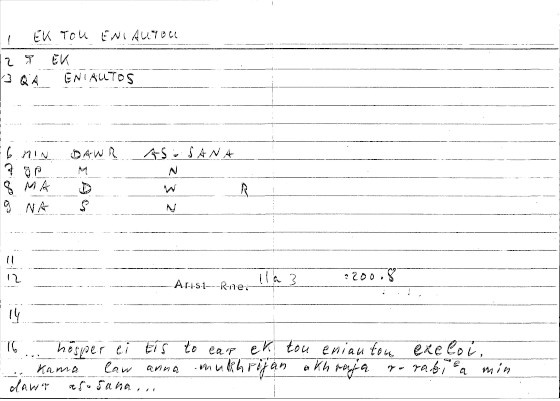 1 EK TOU ENIAUTOU
2 T EK
3 QA ENIAUTOS
6 MIN DAWR AS-SANA
7 M N
8 MA D W R
9 NA S N
11
12 Arist Rhe. 11a 3 :200.8
14
16 ... hōsper ei tis to ear ek tou eniautou exeloi.
.. kama law anna mukhrijan akhraja r-rabīʿa min
dawr as-sana...